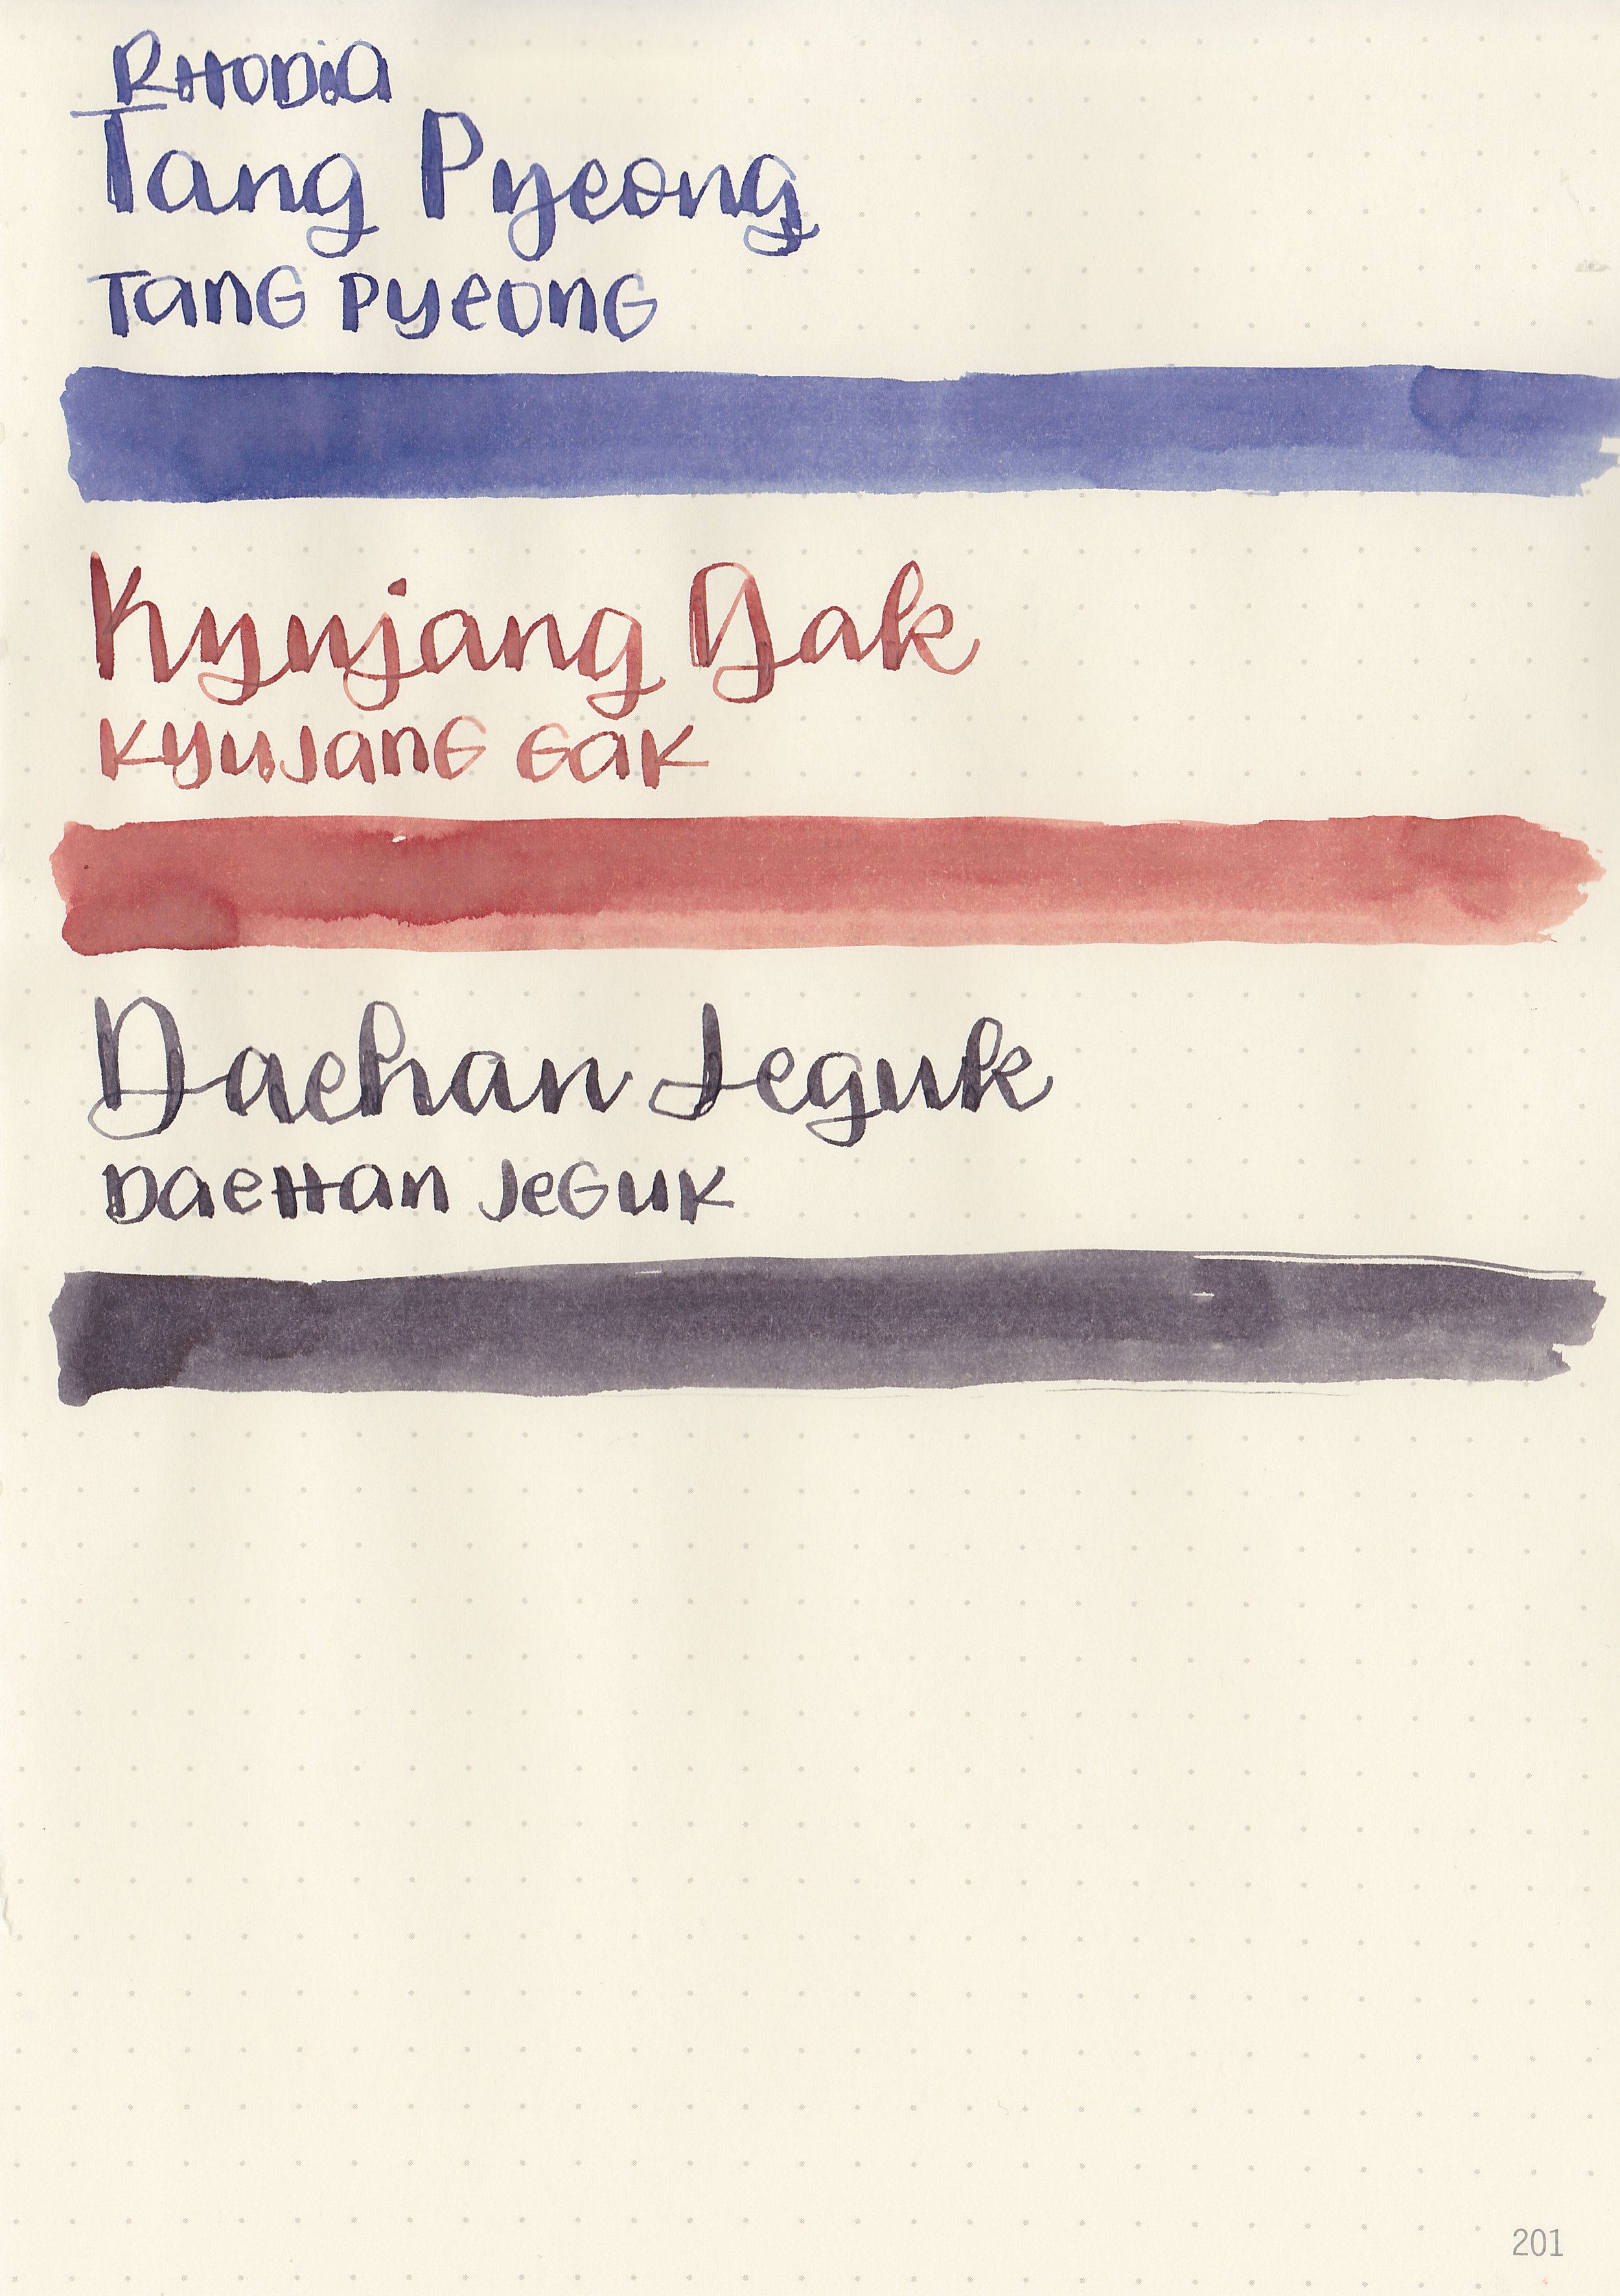 RHODIA
Tang Pyeong
Tang Pyeong
Kyujang Gak
Kyujang Gak
Daehan Jeguk
Daehan Jeguk
201